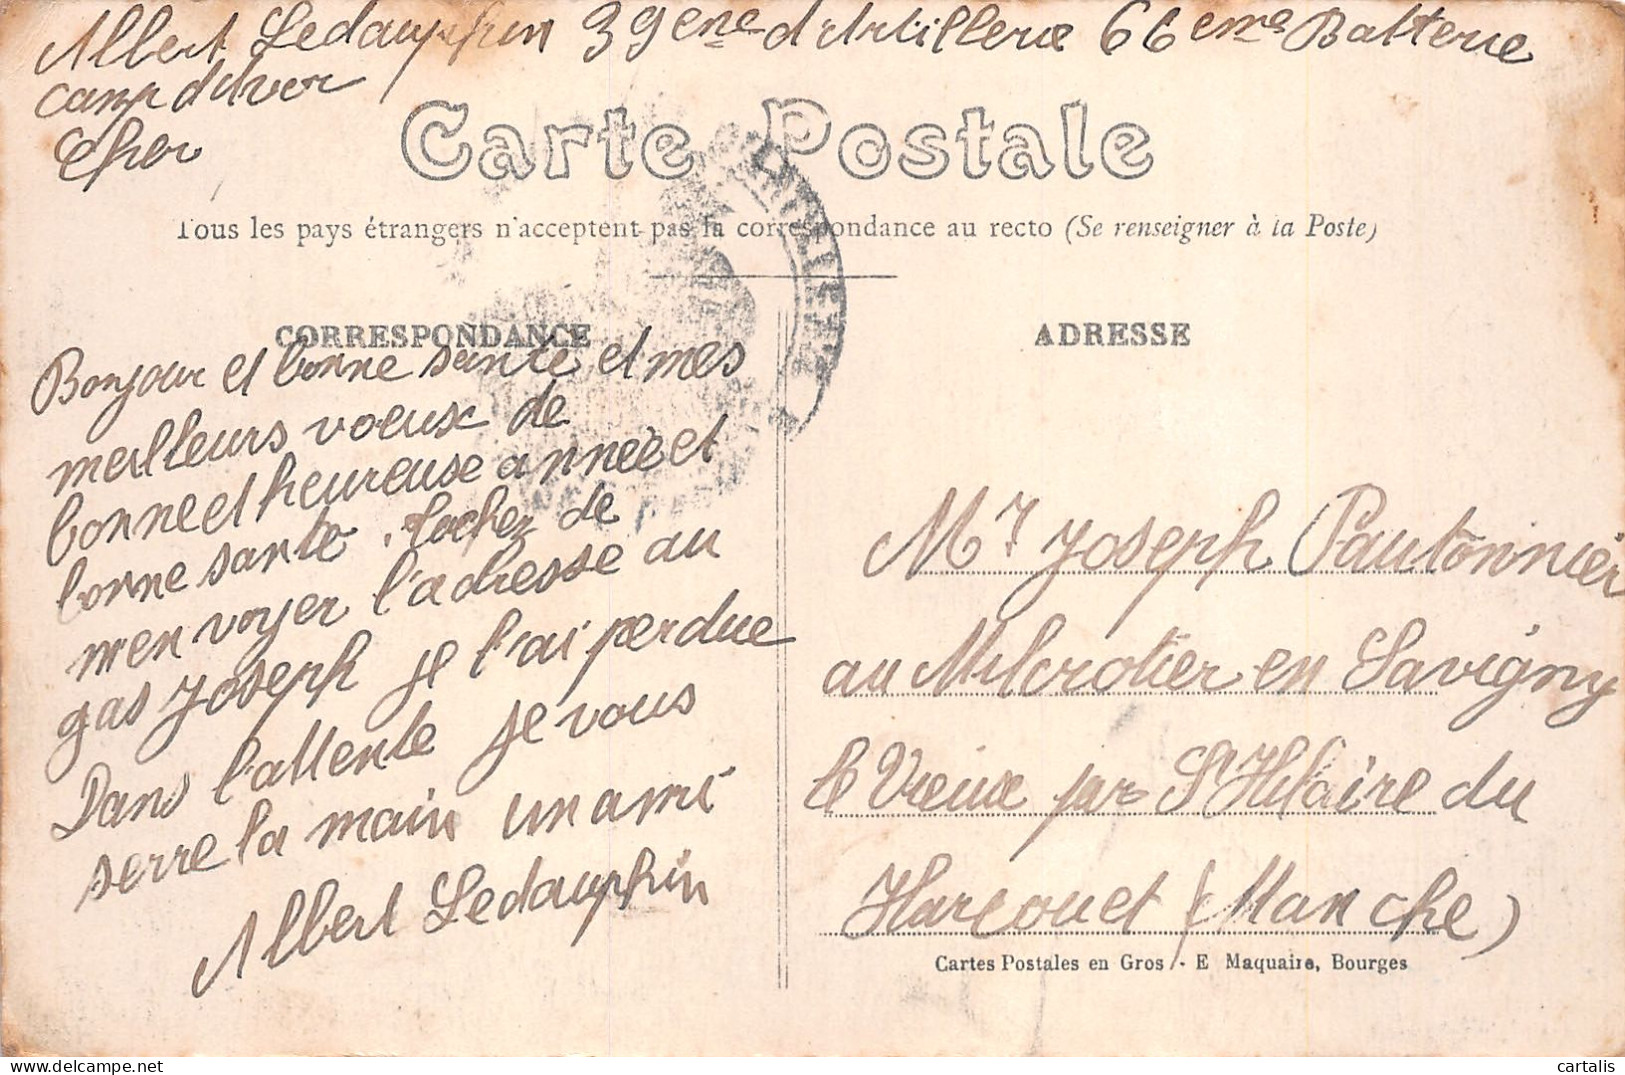 Albert Ledauphin 39eme d'Artillerie 66eme Batterie
camp d'Avor
Cher
Carte Postale
Tous les pays étrangers n'acceptent pas la correspondance au recto (Se renseigner à la Poste)
CORRESPONDANCE
Bonjour et bonne sante et mes
meilleurs voeux de
bonne et heureuse année et
bonne sante. tachez de
m'en voyer l'adresse au
gas Joseph je l'ai perdue
Dans l'attente je vous
serre la main un ami
Albert Ledauphin
ADRESSE
Mr Joseph Pautonnier
au Milcrotier en Savigny
le Vieux par St Hilaire du
Harcouet (Manche)
Cartes Postales en Gros - E Maquaire, Bourges
cartalis